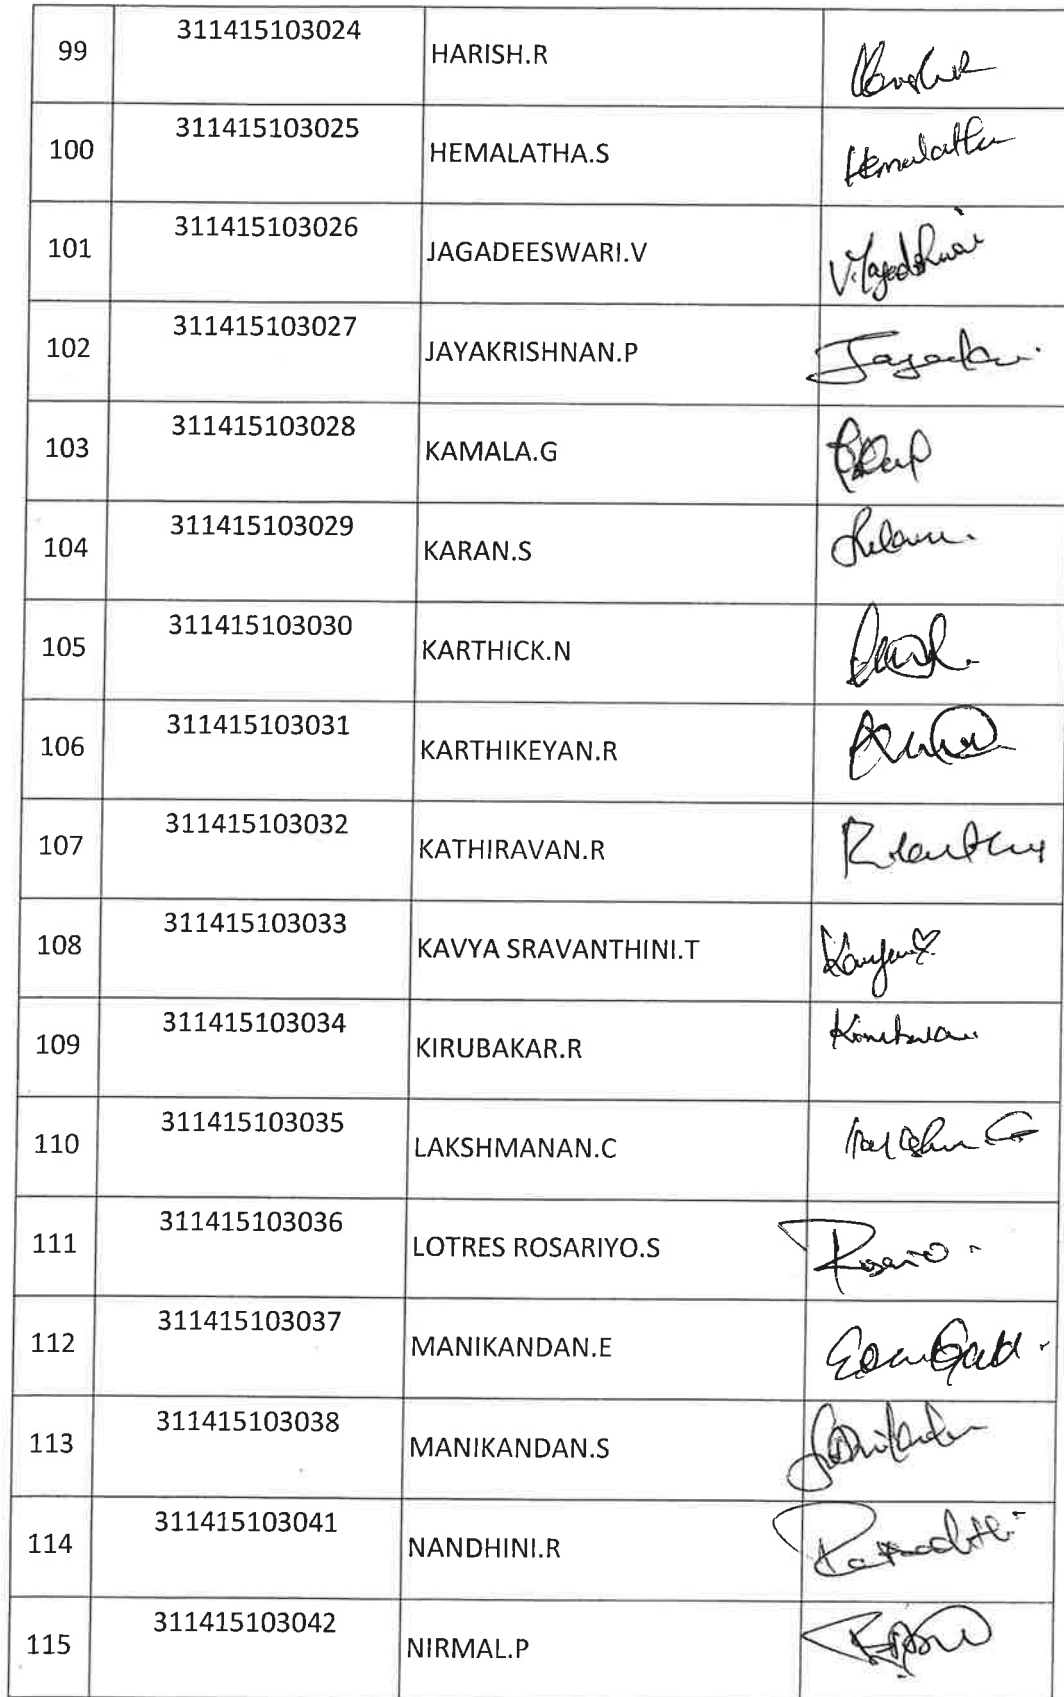 99 311415103024 HARISH.R
100 311415103025 HEMALATHA.S Hemalatha
101 311415103026 JAGADEESWARI.V
102 311415103027 JAYAKRISHNAN.P
103 311415103028 KAMALA.G
104 311415103029 KARAN.S
105 311415103030 KARTHICK.N
106 311415103031 KARTHIKEYAN.R
107 311415103032 KATHIRAVAN.R
108 311415103033 KAVYA SRAVANTHINI.T
109 311415103034 KIRUBAKAR.R
110 311415103035 LAKSHMANAN.C
111 311415103036 LOTRES ROSARIYO.S
112 311415103037 MANIKANDAN.E
113 311415103038 MANIKANDAN.S
114 311415103041 NANDHINI.R
115 311415103042 NIRMAL.P